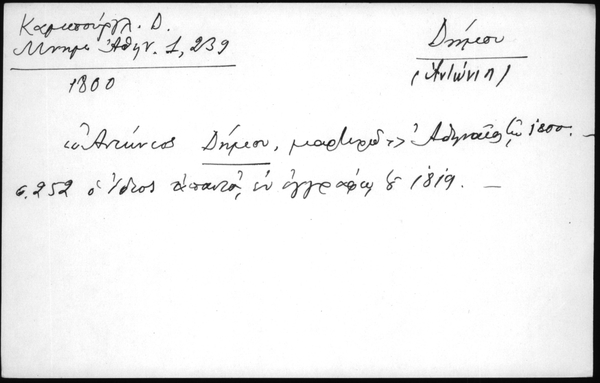 Καμπούρογλ. Δ.
Μνημ. Ἀθην. 1, 239
1800
Δήμου
(Ἀντώνιος)
«Ἀντώνιος Δήμου, μαρτυρῶ» Ἀθηναῖος, 1800. —
σ. 252 ὁ ἴδιος ἀπαντᾷ ἐν ἐγγράφῳ 1819. —